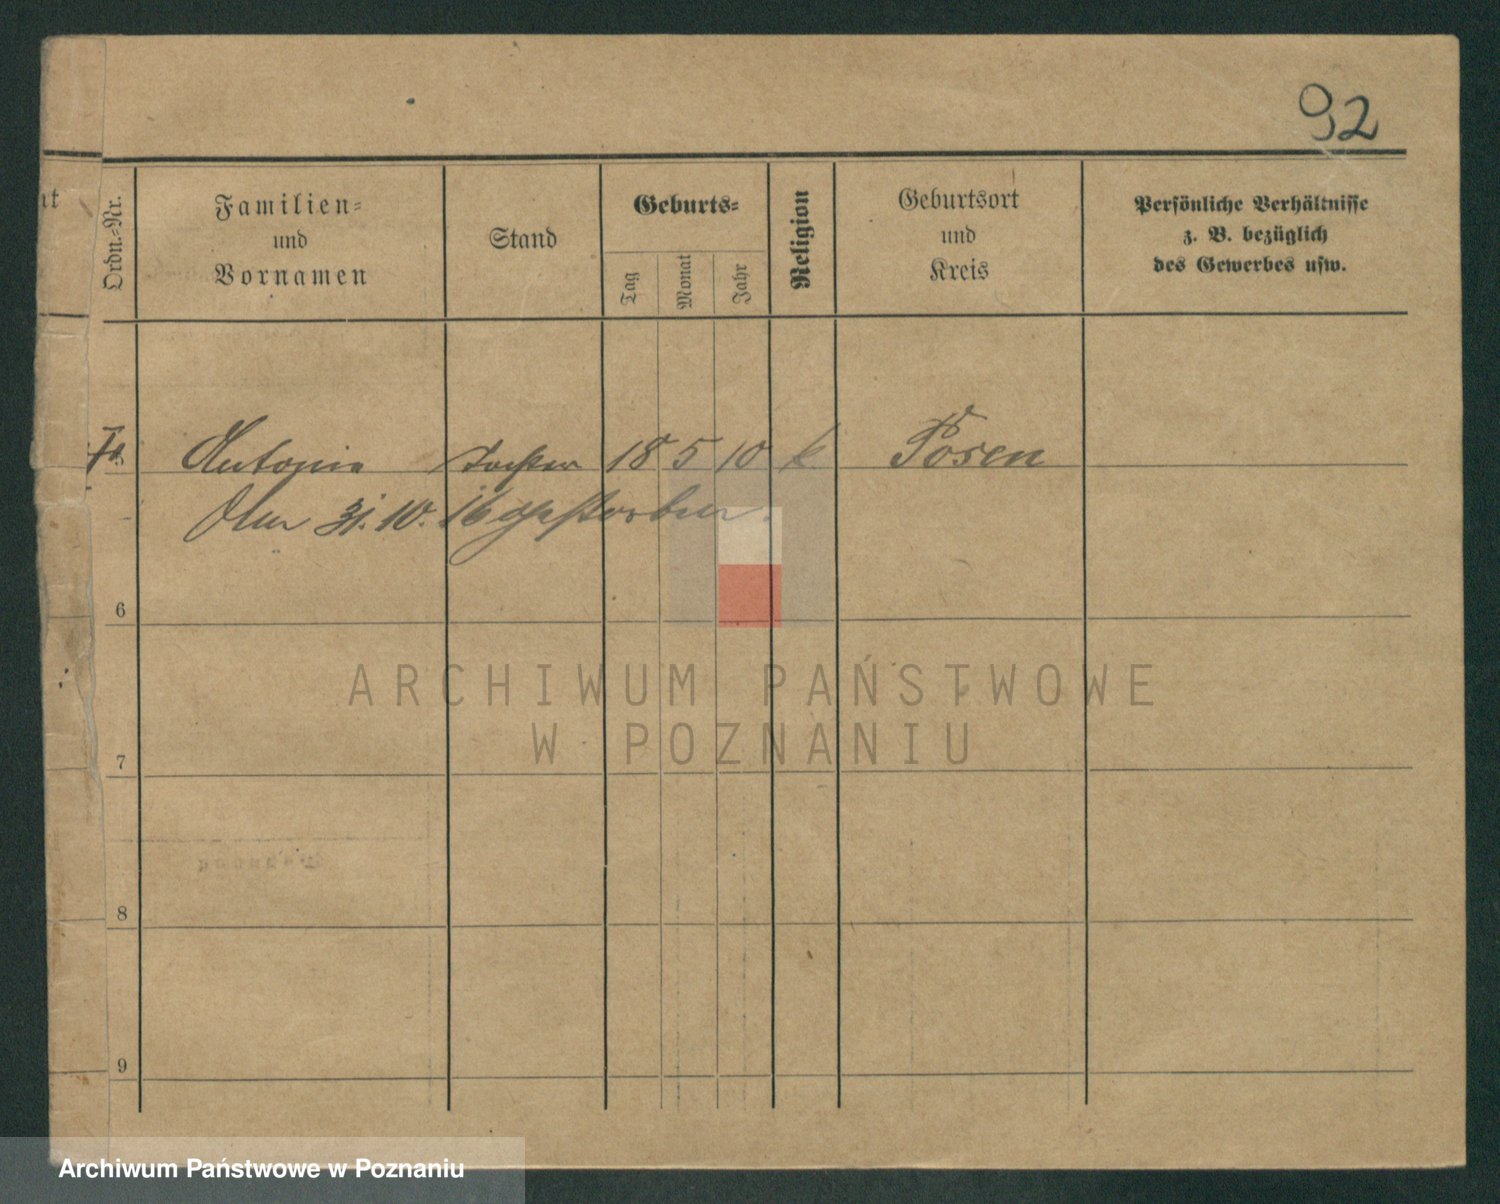 92
nt
Ordn.-Nr.
Familien-
und
Vornamen
Stand
Geburts-
Tag
Monat
Jahr
Religion
Geburtsort
und
Kreis
Persönliche Verhältnisse
z. B. bezüglich
des Gewerbes usw.
Antonie Tochter 18 5 10 k Posen
31. 10. 16 gestorben.
6
7
8
9
ARCHIWUM PAŃSTWOWE
W POZNANIU
Archiwum Państwowe w Poznaniu